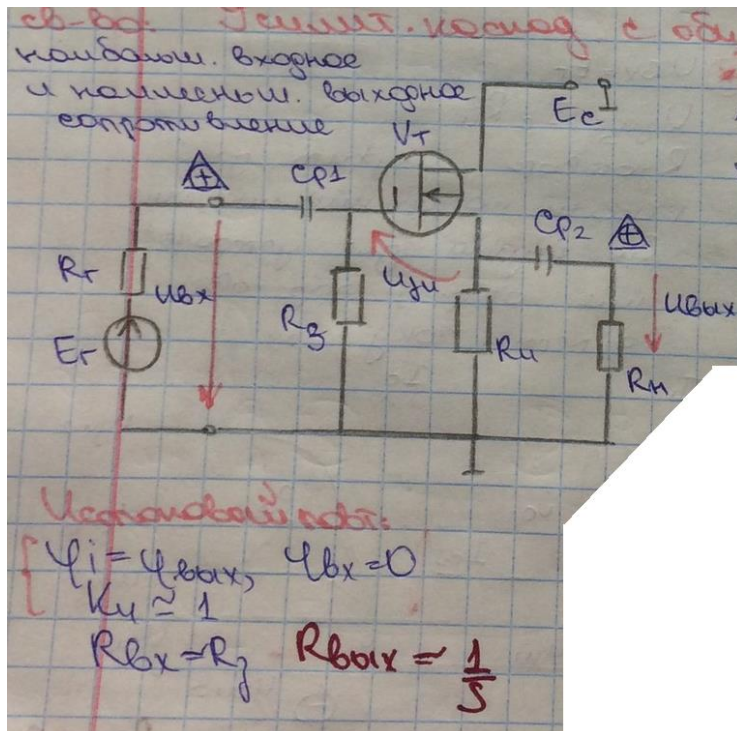 св-ва: Усилит. каскад с общ
наибольш. входное
и наименьш. выходное
сопротивление
VT
Eс
Cр1
Cр2
Rг
Uвх
Eг
Rз
Uзи
Rи
Uвых
Rн
Истоковый повт:
φi = φвых, φвх = 0
Kи ≃ 1
Rвх = Rз Rвых = 1/S